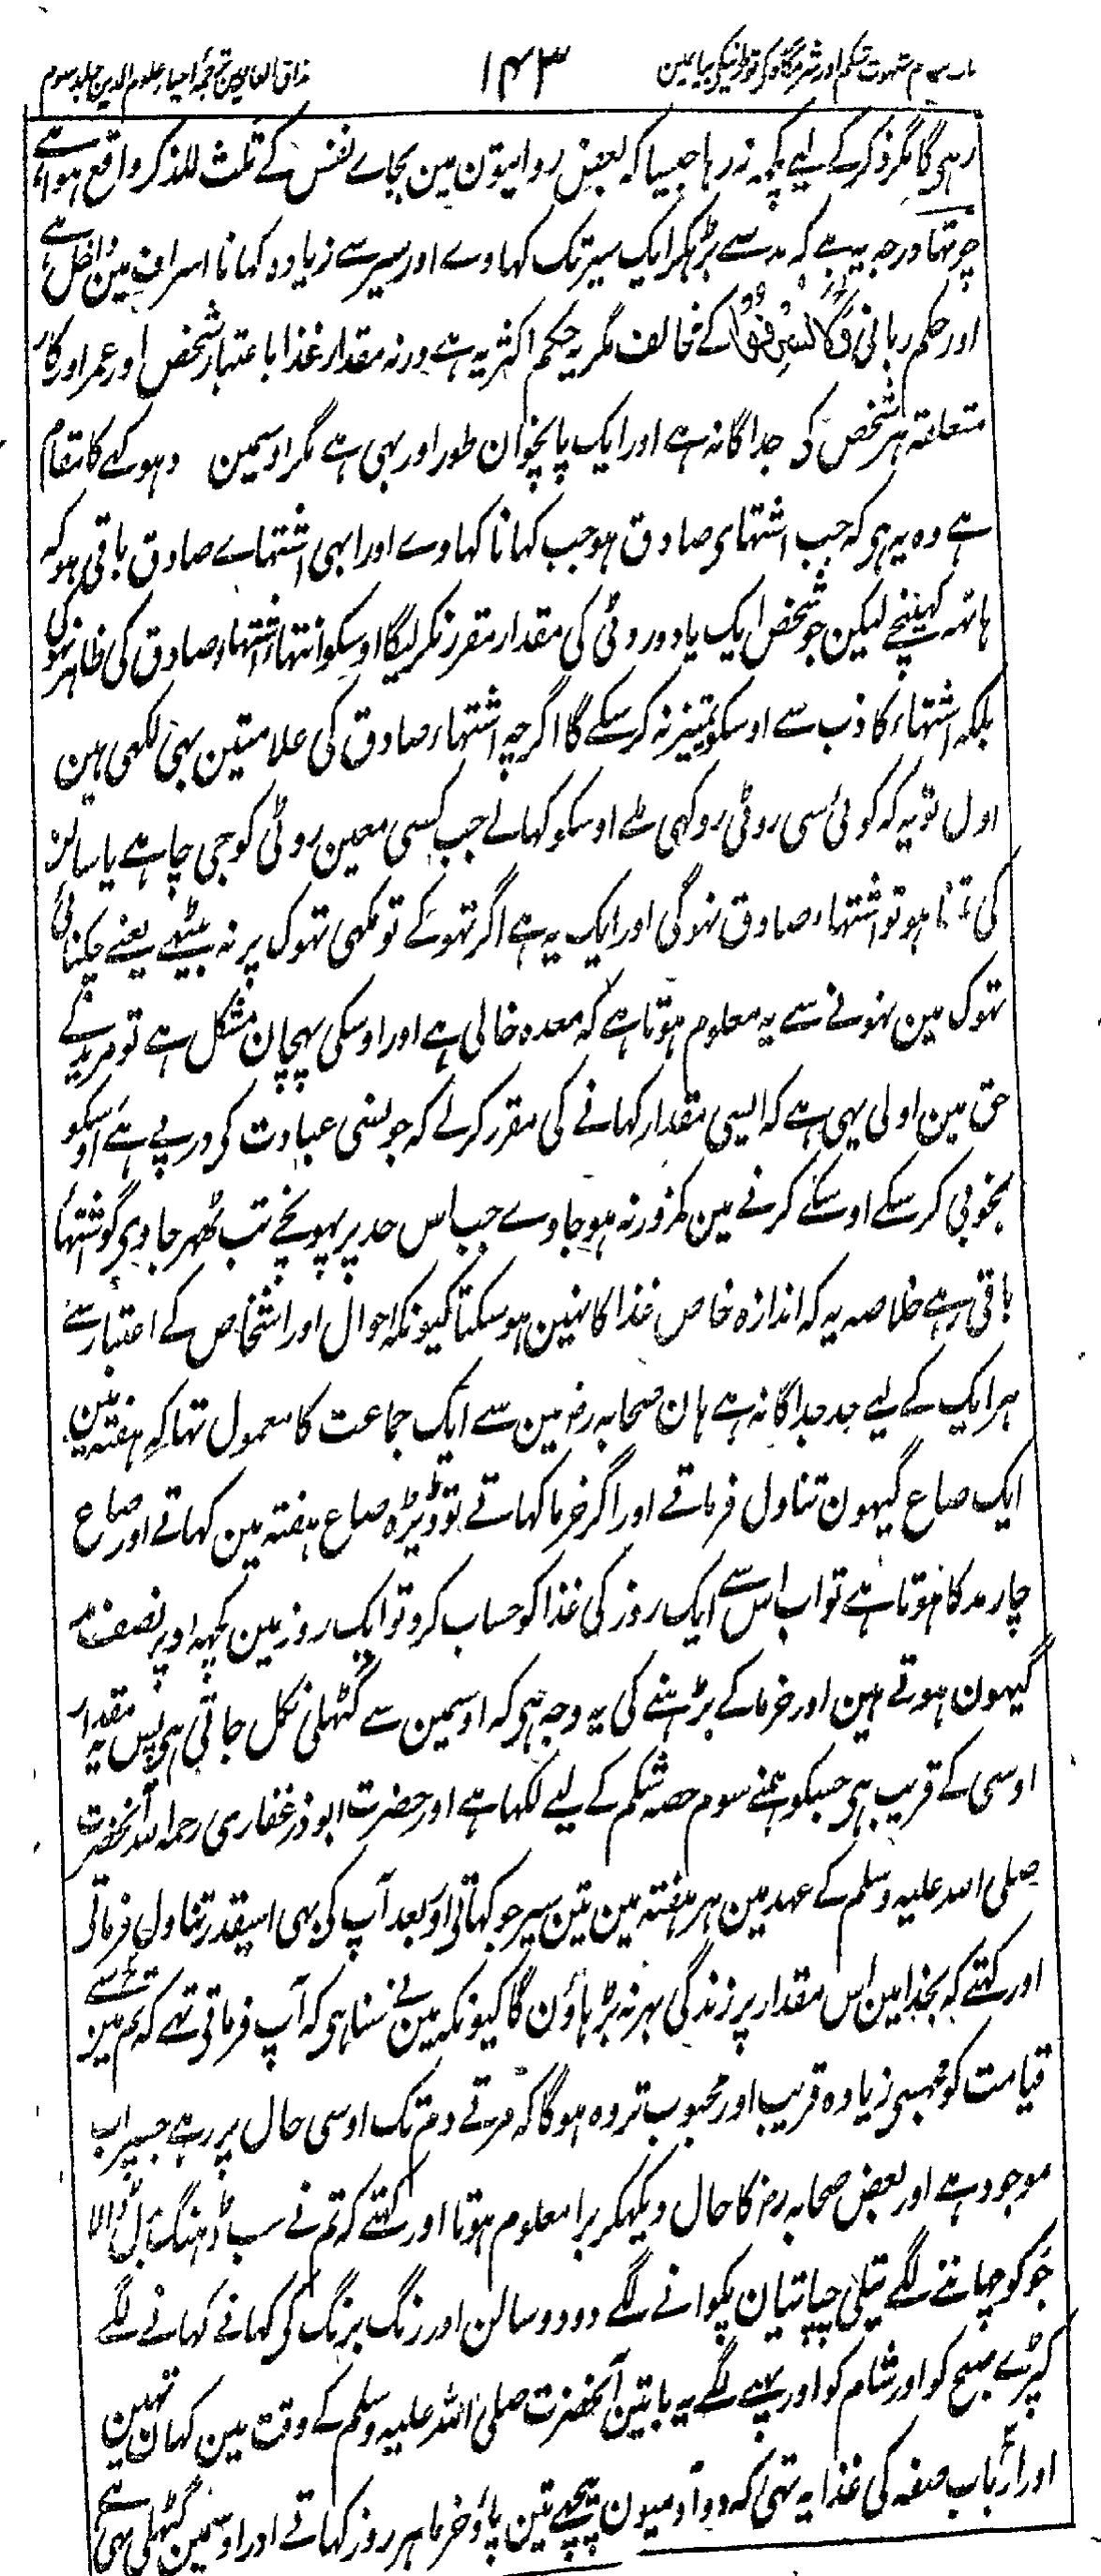 باب سوم شہوت شکم اور شرمگاہ کے توڑنیکے بیانمین ۱۴۳ مذاق العارفین ترجمہ احیاء علوم الدین جلد سوم
رہیگا مگر ذکر کے لیے کچھ نہ رہا جیسا کہ بعض روایتون مین بجاے نفس کے ثلث للذکر واقع ہوا ہے
چوتھا درجہ یہ ہے کہ مد سے بڑہکر ایک سیر تک کہاوے اور سیر سے زیادہ کہانا اسراف مین داخل ہے
اور حکم ربانی وَلَا تُسْرِفُوْا کے مخالف مگر یہ حکم اکثریہ ہے ورنہ مقدار غذا باعتبار شخص اور عمر اور کار
متعلقہ ہر شخص کی جداگانہ ہے اور ایک پانچوان طور اور بہی ہے مگر اوسمین دہوکے کا مقام
ہے وہ یہ ہی کہ جب اشتہای صادق ہو جب کہانا کہاوے اور ابہی اشتہاے صادق باقی ہو کہ
ہاتہہ کہینچے لیکن جو شخص ایک یا دو روٹی کی مقدار مقرر نکر لیگا اوسکو انتہا اشتہاء صادق کی ظاہر نہوگی
بلکہ اشتہاء کاذب سے اوسکو تمیز نہ کر سکے گا اگرچہ اشتہاء صادق کی علامتین بہی لکھی ہین
اول تو یہ کہ کوئی سی روٹی روکہی ملے اوسکو کہالے جب کسی معین روٹی کو جی چاہے یا سالن
کی تمنا ہو تو اشتہاء صادق نہوگی اور ایک یہ ہے اگر تہوکے تو مکہی تہوک پر نہ بیٹہے یعنے چکنائی
تہوک مین نہونے سے یہ معلوم ہوتا ہے کہ معدہ خالی ہے اور اوسکی پہچان مشکل ہے تو مرید کے
حق مین اولی یہی ہے کہ ایسی مقدار کہانے کی مقرر کرلے کہ جونسی عبادت کی درپے ہے اوسکو
بخوبی کر سکے اوسکے کرنے مین کمزور نہ ہوجاوے جب اس حد پر پہونچے تب ٹہر جاوی گو اشتہا
باقی رہے خلاصہ یہ کہ اندازہ خاص غذا کا نہین ہو سکتا کیونکہ احوال اور اشخاص کے اعتبار سے
ہر ایک کے لیے حد جداگانہ ہے ہان صحابہ رض مین سے ایک جماعت کا معمول تہا کہ ہفتہ مین
ایک صاع گیہون تناول فرماتے اور اگر خرما کہاتے تو ڈیڑہ صاع ہفتہ مین کہاتے اور صاع
چار مد کا ہوتا ہے تو اب اس سے ایک روز کی غذا کو حساب کرو تو ایک روز مین کچہہ اوپر نصف مد
گیہون ہوتے ہین اور خرما کے بڑہنے کی یہ وجہ ہی کہ اوسمین سے گٹہلی نکل جاتی ہی پس یہ مقدار
اوسی کے قریب ہی جسکو ہمنے سوم حصہ شکم کے لیے لکھا ہے اور حضرت ابوذر غفاری رحمہ اللہ آنحضرت
صلی اللہ علیہ وسلم کے عہد مین ہر ہفتہ مین تین سیر جو کہاتی اور بعد آپ کی بہی اسیقدر تناول فرماتی
اور کہتے کہ بخدا مین اس مقدار پر زندگی بہر نہ بڑہاؤن گا کیونکہ مین نے سنا ہی کہ آپ فرماتی تہے کہ تم مین سے
قیامت کو مجہسی زیادہ قریب اور محبوب تر وہ ہوگا کہ مرتے دم تک اوسی حال پر رہے جسپر اب
موجود ہے اور بعض صحابہ رض کا حال دیکہکر برا معلوم ہوتا اور کہتے کہ تم نے سب ڈہنگ بدل ڈالا
جو کو چہاننے لگے پتلی چپاتیان پکوانے لگے دو دو سالن اور رنگ برنگ کی کہانے کہانے لگے
کپڑے صبح کو اور شام کو اور پہننے لگے یہ باتین آنحضرت صلی اللہ علیہ وسلم کے وقت مین کہان تہین
اور ارباب صفہ کی غذا یہ تہی کہ دو آدمیون پیچہے تین پاؤ خرما ہر روز کہاتے اور اوسمین گٹہلی بہی ہے